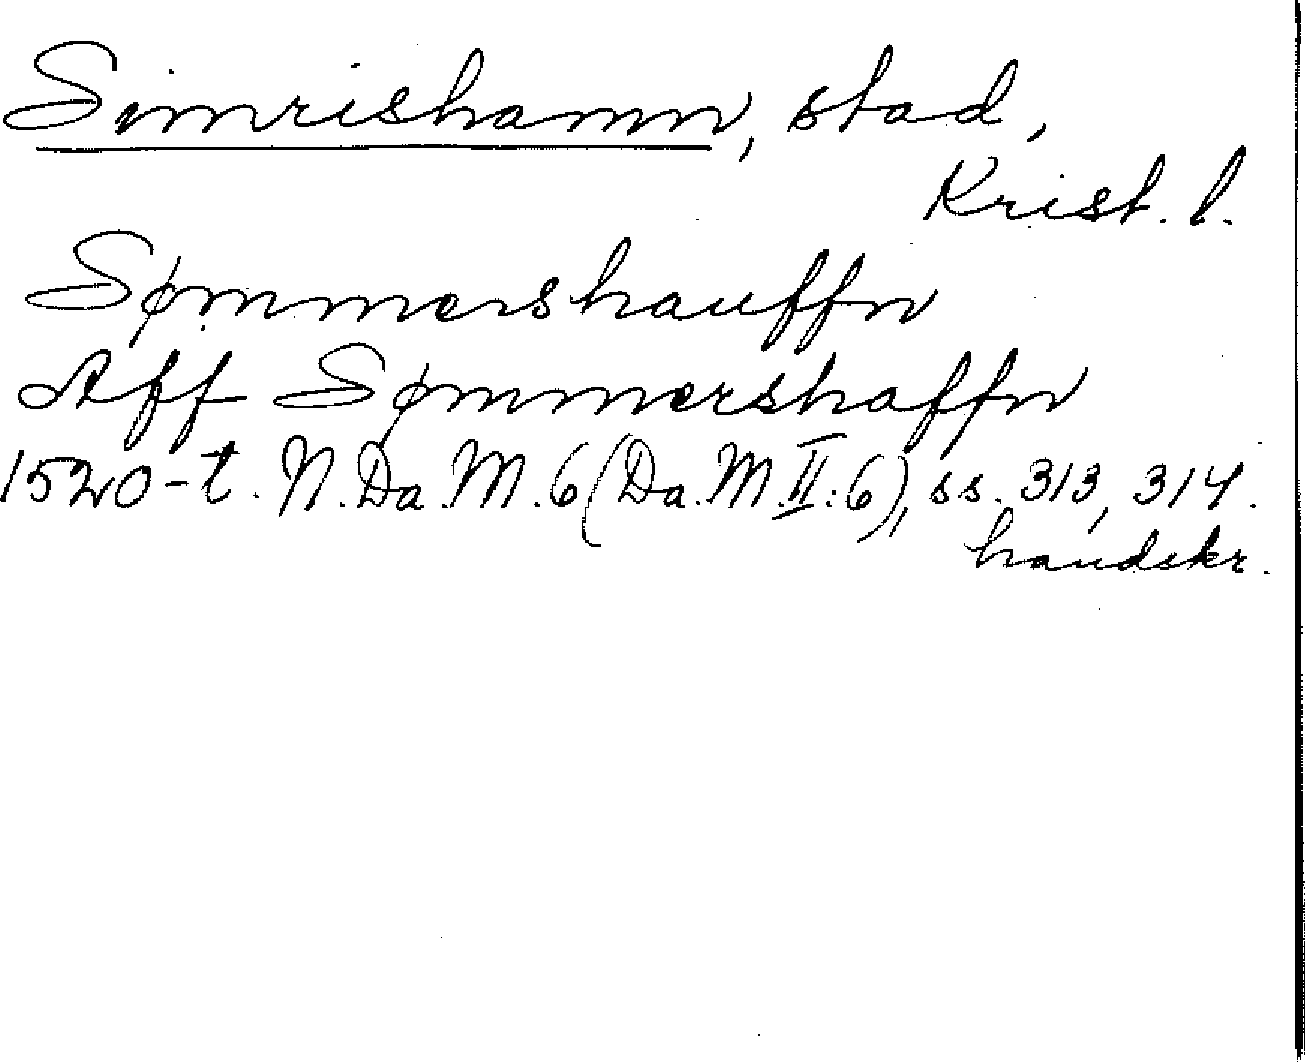 Simrishamn, stad,
Krist. l.
Sømmershauffn
Aff Sømmershaffn
1520-t. N. Da. M. 6 (Da. M. II: 6), ss. 313, 314.
handskr.